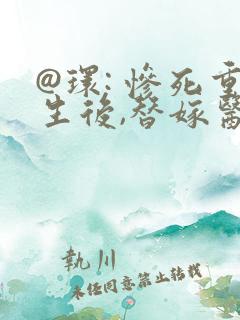 @環:慘死重
生後,替嫁醫
執川
未经同意禁止转载